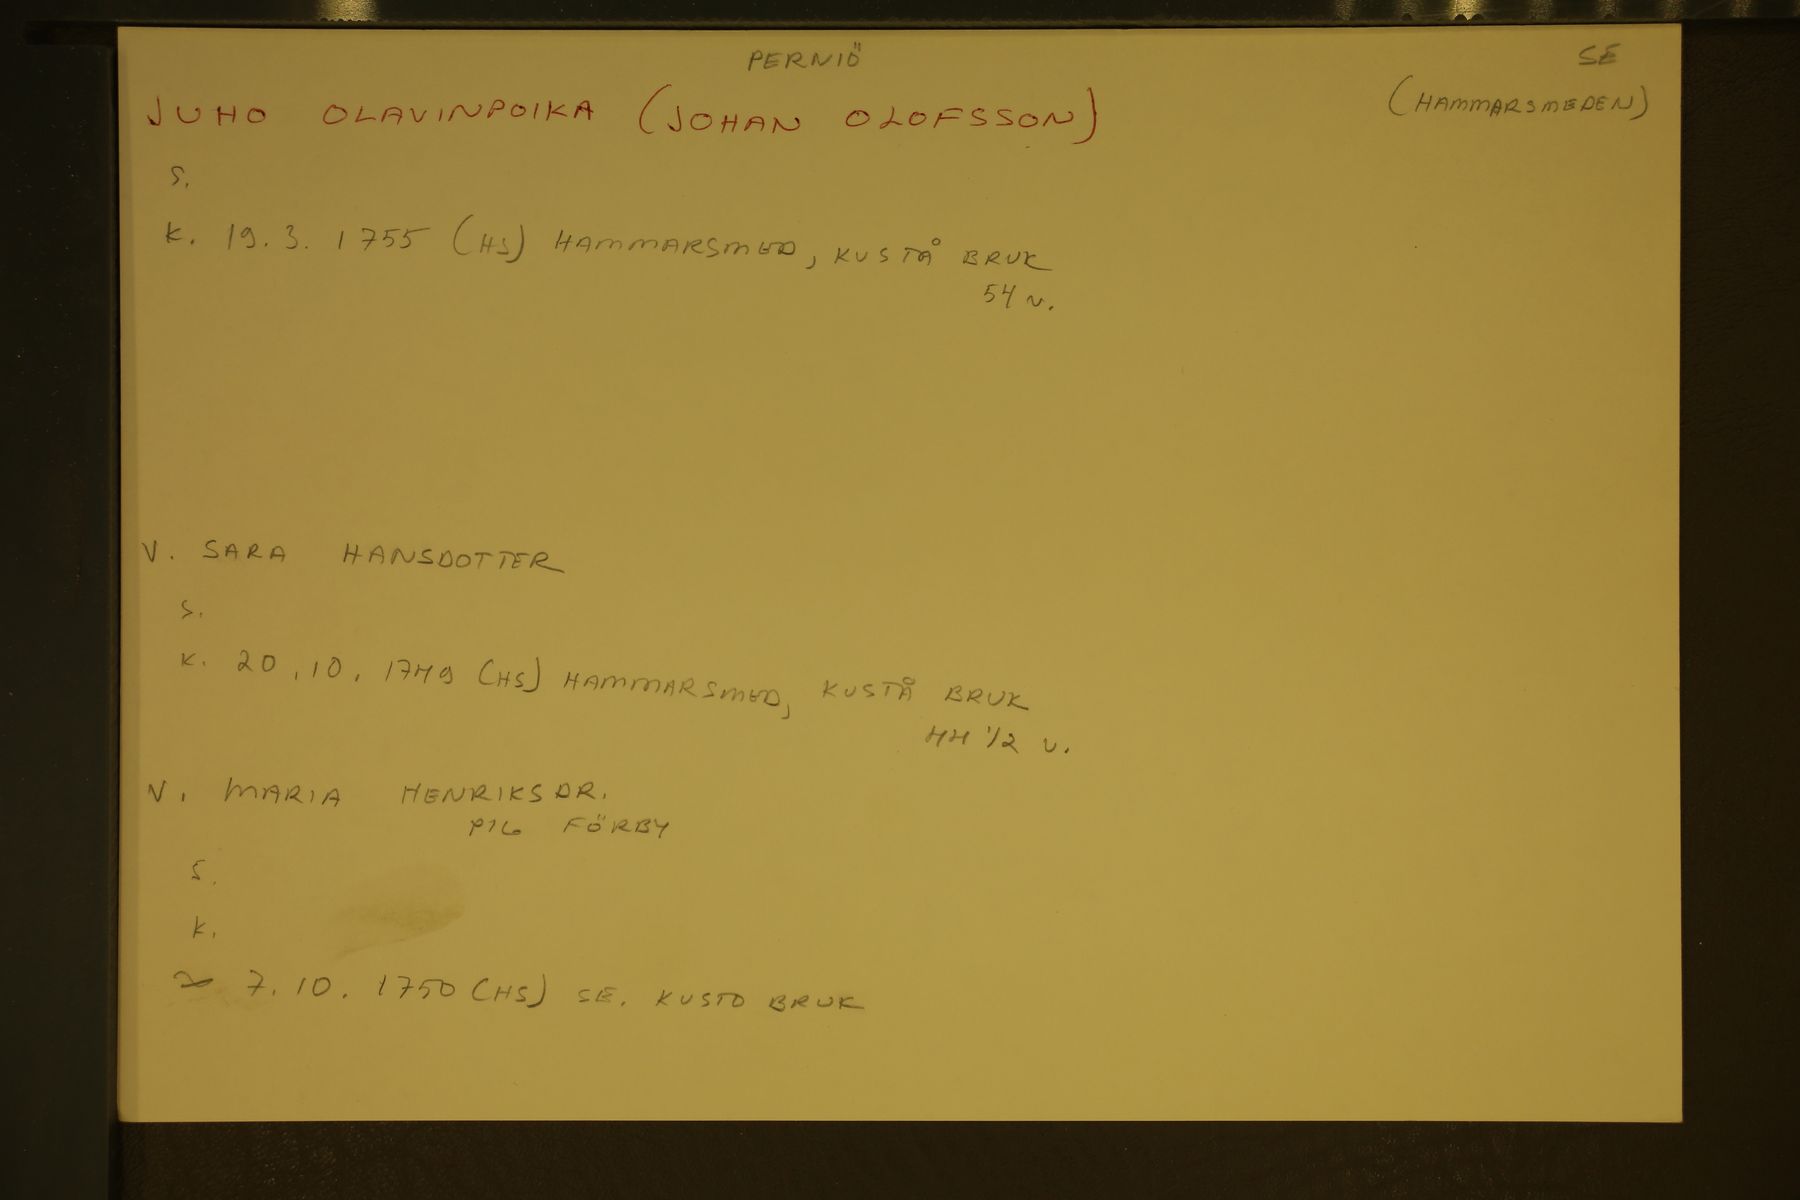 PERNIÖ
SE
JUHO OLAVINPOIKA (JOHAN OLOFSSON)
(HAMMARSMEDEN)
S.
K. 19.3. 1755 (HS) HAMMARSMED, KUSTÅ BRUK
54 v.
V. SARA HANSDOTTER
S.
K. 20.10. 1749 (HS) HAMMARSMED, KUSTÅ BRUK
44 1/2 v.
V. MARIA HENRIKSDR.
PIG FÖRBY
S.
K.
7.10. 1750 (HS) SE. KUSTO BRUK